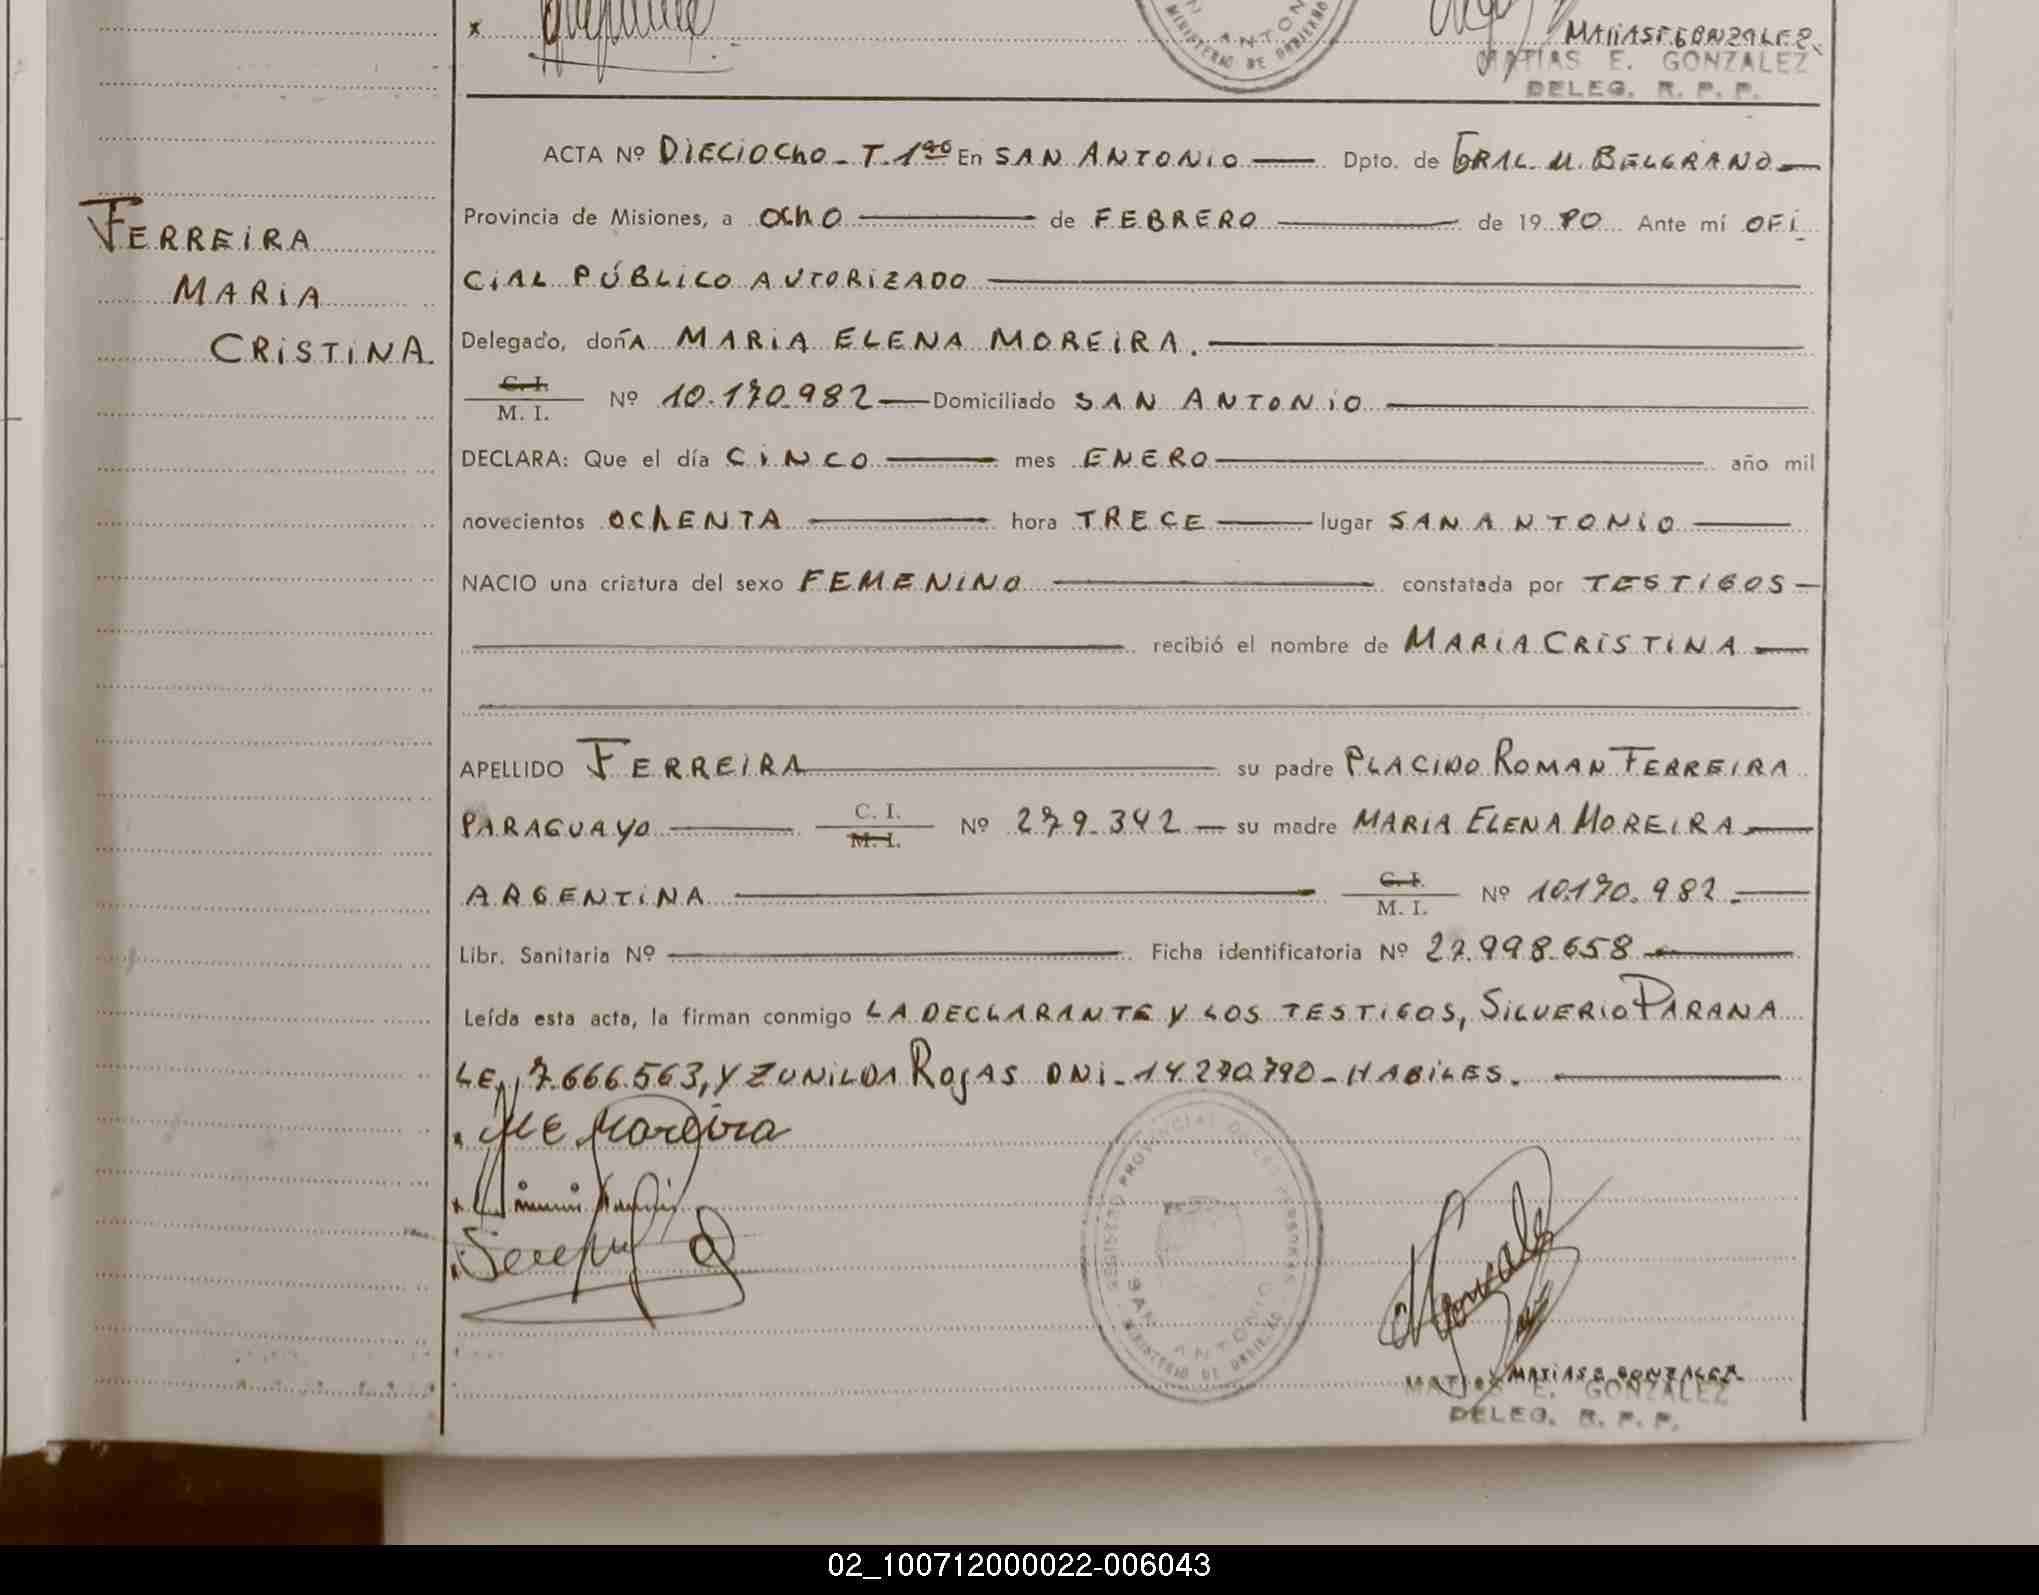 x
MINISTERIO DE GOBIERNO
MATIAS E GONZALEZ
MATIAS E. GONZALEZ
DELEG. R. P. P.
ACTA Nº DIECIOCHO - T. 1ro En SAN ANTONIO Dpto. de GRAL M. BELGRANO
FERREIRA
MARIA
CRISTINA.
Provincia de Misiones, a OCHO de FEBRERO de 1980 Ante mí OFI
CIAL PÚBLICO AUTORIZADO
Delegado, doñA MARIA ELENA MOREIRA.
C. I.
M. I. Nº 10.170.982 Domiciliado SAN ANTONIO
DECLARA: Que el día CINCO mes ENERO año mil
novecientos OCHENTA hora TRECE lugar SAN ANTONIO
NACIO una criatura del sexo FEMENINO constatada por TESTIGOS
recibió el nombre de MARIA CRISTINA
APELLIDO FERREIRA su padre PLACIDO ROMAN FERREIRA
PARAGUAYO C. I. M. I. Nº 279.342 su madre MARIA ELENA MOREIRA
ARGENTINA C. I. M. I. Nº 10.170.982
Libr. Sanitaria Nº Ficha identificatoria Nº 27.998.658
Leída esta acta, la firman conmigo LA DECLARANTE Y LOS TESTIGOS, SILVERIO PARANA
LE. 7.666.563, Y ZUNILDA ROJAS DNI - 14.270.790 - HABILES.
M E Moreira
REGISTRO PROVINCIAL DE LAS PERSONAS
SAN ANTONIO
MINISTERIO DE GOBIERNO
MATIAS E GONZALEZ
MATIAS E. GONZALEZ
DELEG. R. P. P.
02_100712000022-006043